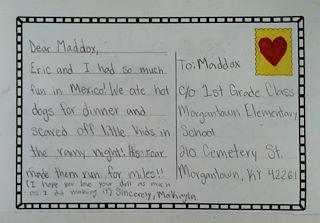 Dear Maddox,
Eric and I had so much
fun in Mexico! We ate hot
dogs for dinner and
scared off little kids in
the rainy night! His roar
made them run for miles!!
(I hope you love your doll as much
as I did making it) Sincerely, Makayla
To: Maddox
c/o 1st Grade Class
Morgantown Elementary
School
210 Cemetery St.
Morgantown, KY 42261